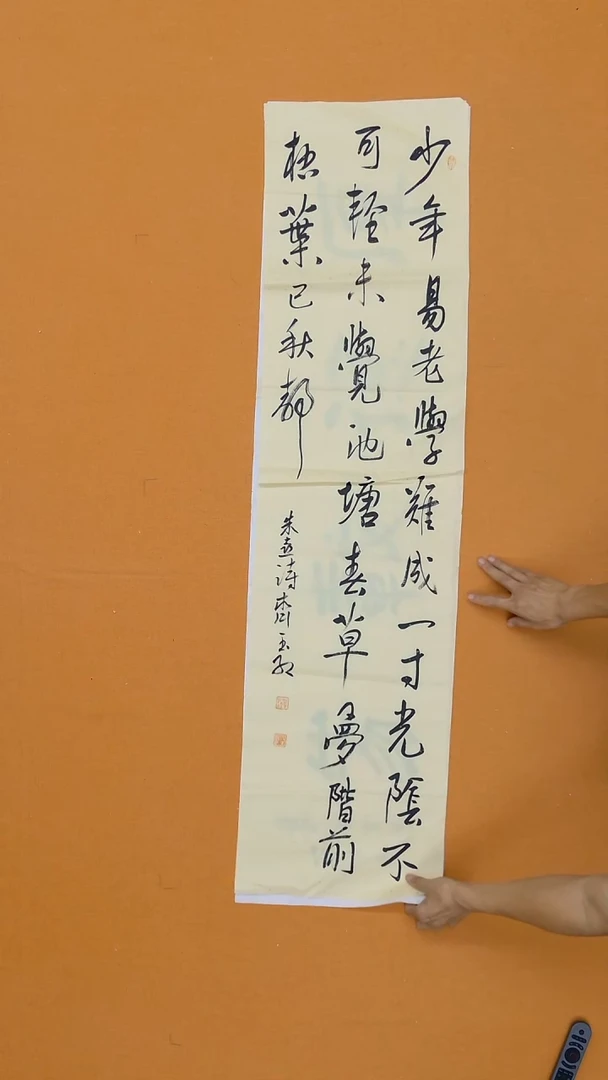 少年易老學難成一寸光陰不
可輕未覺池塘春草夢階前
梧葉已秋聲
朱熹詩